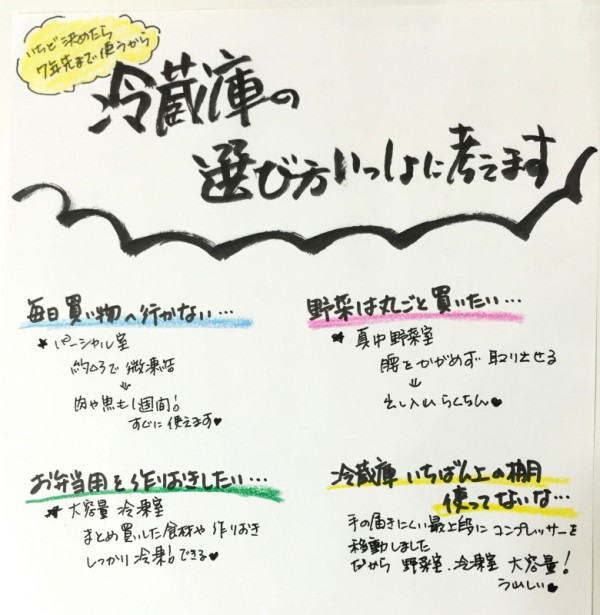 いちど決めたら
7年先まで使うから
冷蔵庫の
選び方いっしょに考えます
毎日買い物へ行かない…
★パーシャル室
約△3で微凍結
↓
肉や魚も1週間!
すぐに使えます♥
野菜は丸ごと買いたい…
★真中野菜室
腰をかがめず取り出せる
↓
出し入れらくちん♥
お弁当用を作りおきしたい…
★大容量冷凍室
まとめ買いした食材や作りおき
しっかり冷凍できる♥
冷蔵庫いちばん上の棚
使ってないな…
手の届きにくい最上段にコンプレッサーを
移動しました
だから野菜室、冷凍室大容量!
うれしい♥